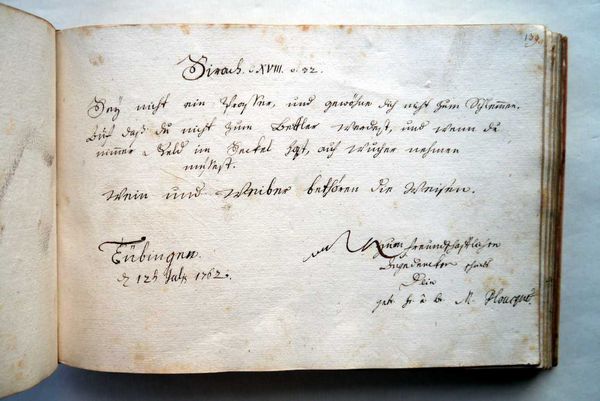 139.
Sirach. c. XVIII. v. 32.
Sey nicht ein Prasser, und gewöhne dich nicht zum Schlemmen.
Auf daß du nicht zum Bettler werdest, und wenn du
nimmer Geld im Seckel hast, auf Wucher nehmen
müßest.
Wein und Weiber bethören die Weisen.
Tübingen.
d. 12t. Jul. 1762.
Zum freundschaftlichen
Angedencken schrieb
Dein
M. Ploucquet.